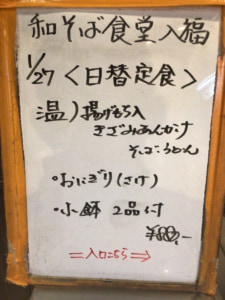 和そば食堂入福
1/27<日替定食>
温)揚げもち入
きざみあんかけ
そば・うどん
・おにぎり(さけ)
・小鉢 2品付
¥880,-
=入口こちら⇒